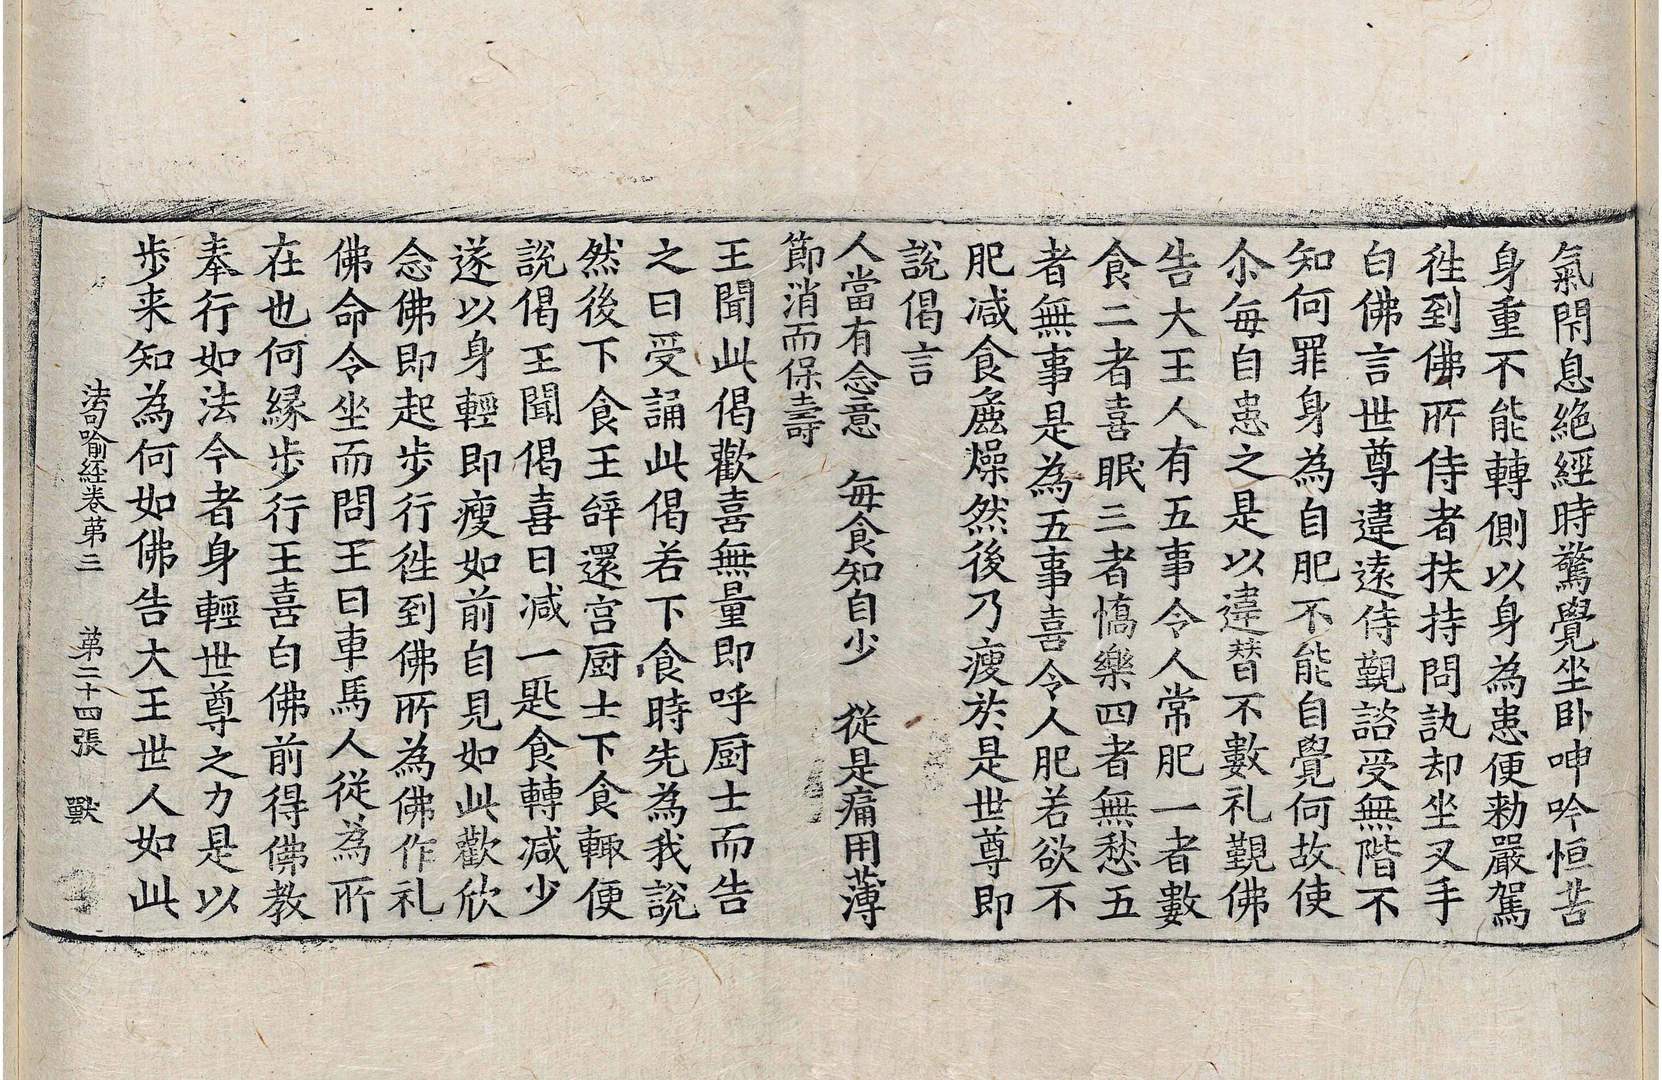 氣閇息絶經時驚覺坐卧呻吟恒苦
身重不能轉側以身為患便勑嚴駕
徃到佛所侍者扶持問訊却坐叉手
白佛言世尊違遠侍覲諮受無階不
知何罪身為自肥不能自覺何故使
尒每自患之是以違替不數礼覲佛
告大王人有五事令人常肥一者數
食二者喜眠三者憍樂四者無愁五
者無事是為五事喜令人肥若欲不
肥減食麁燥然後乃瘦於是世尊即
說偈言
人當有念意　每食知自少　從是痛用薄
節消而保壽
王聞此偈歡喜無量即呼厨士而告
之曰受誦此偈若下食時先為我說
然後下食王辭還宮厨士下食輙便
說偈王聞偈喜日減一匙食轉減少
遂以身輕即瘦如前自見如此歡欣
念佛即起步行徃到佛所為佛作礼
佛命令坐而問王曰車馬人從為所
在也何緣步行王喜白佛前得佛教
奉行如法今者身輕世尊之力是以
步来知為何如佛告大王世人如此
法句喻經卷第三　第二十四張　獸